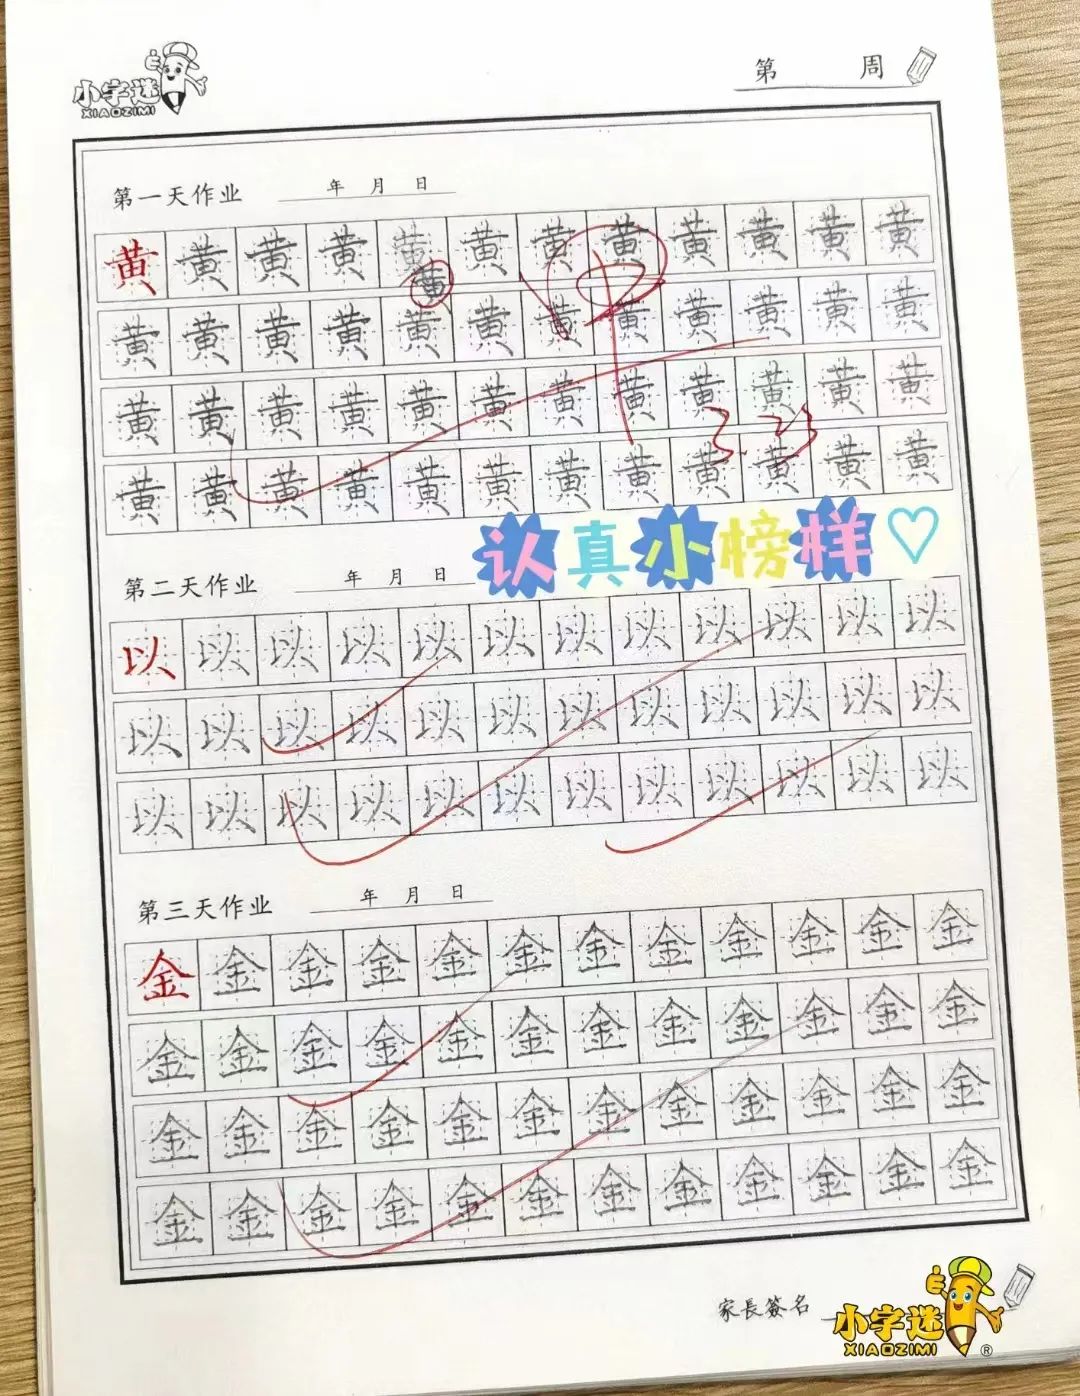 小字迷
XIAOZIMI
第 周
第一天作业 年 月 日
黄黄黄黄黄黄黄黄黄黄黄黄
黄
黄黄黄黄黄黄黄黄黄黄黄黄
黄黄黄黄黄黄黄黄黄黄黄黄
黄黄黄黄黄黄黄黄黄黄黄黄
认真小榜样
第二天作业 年 月 日
以以以以以以以以以以以以
以以以以以以以以以以以以
以以以以以以以以以以以以
第三天作业 年 月 日
金金金金金金金金金金金金
金金金金金金金金金金金金
金金金金金金金金金金金金
金金金金金金金金金金金金
家長簽名
小字迷
XIAOZIMI®